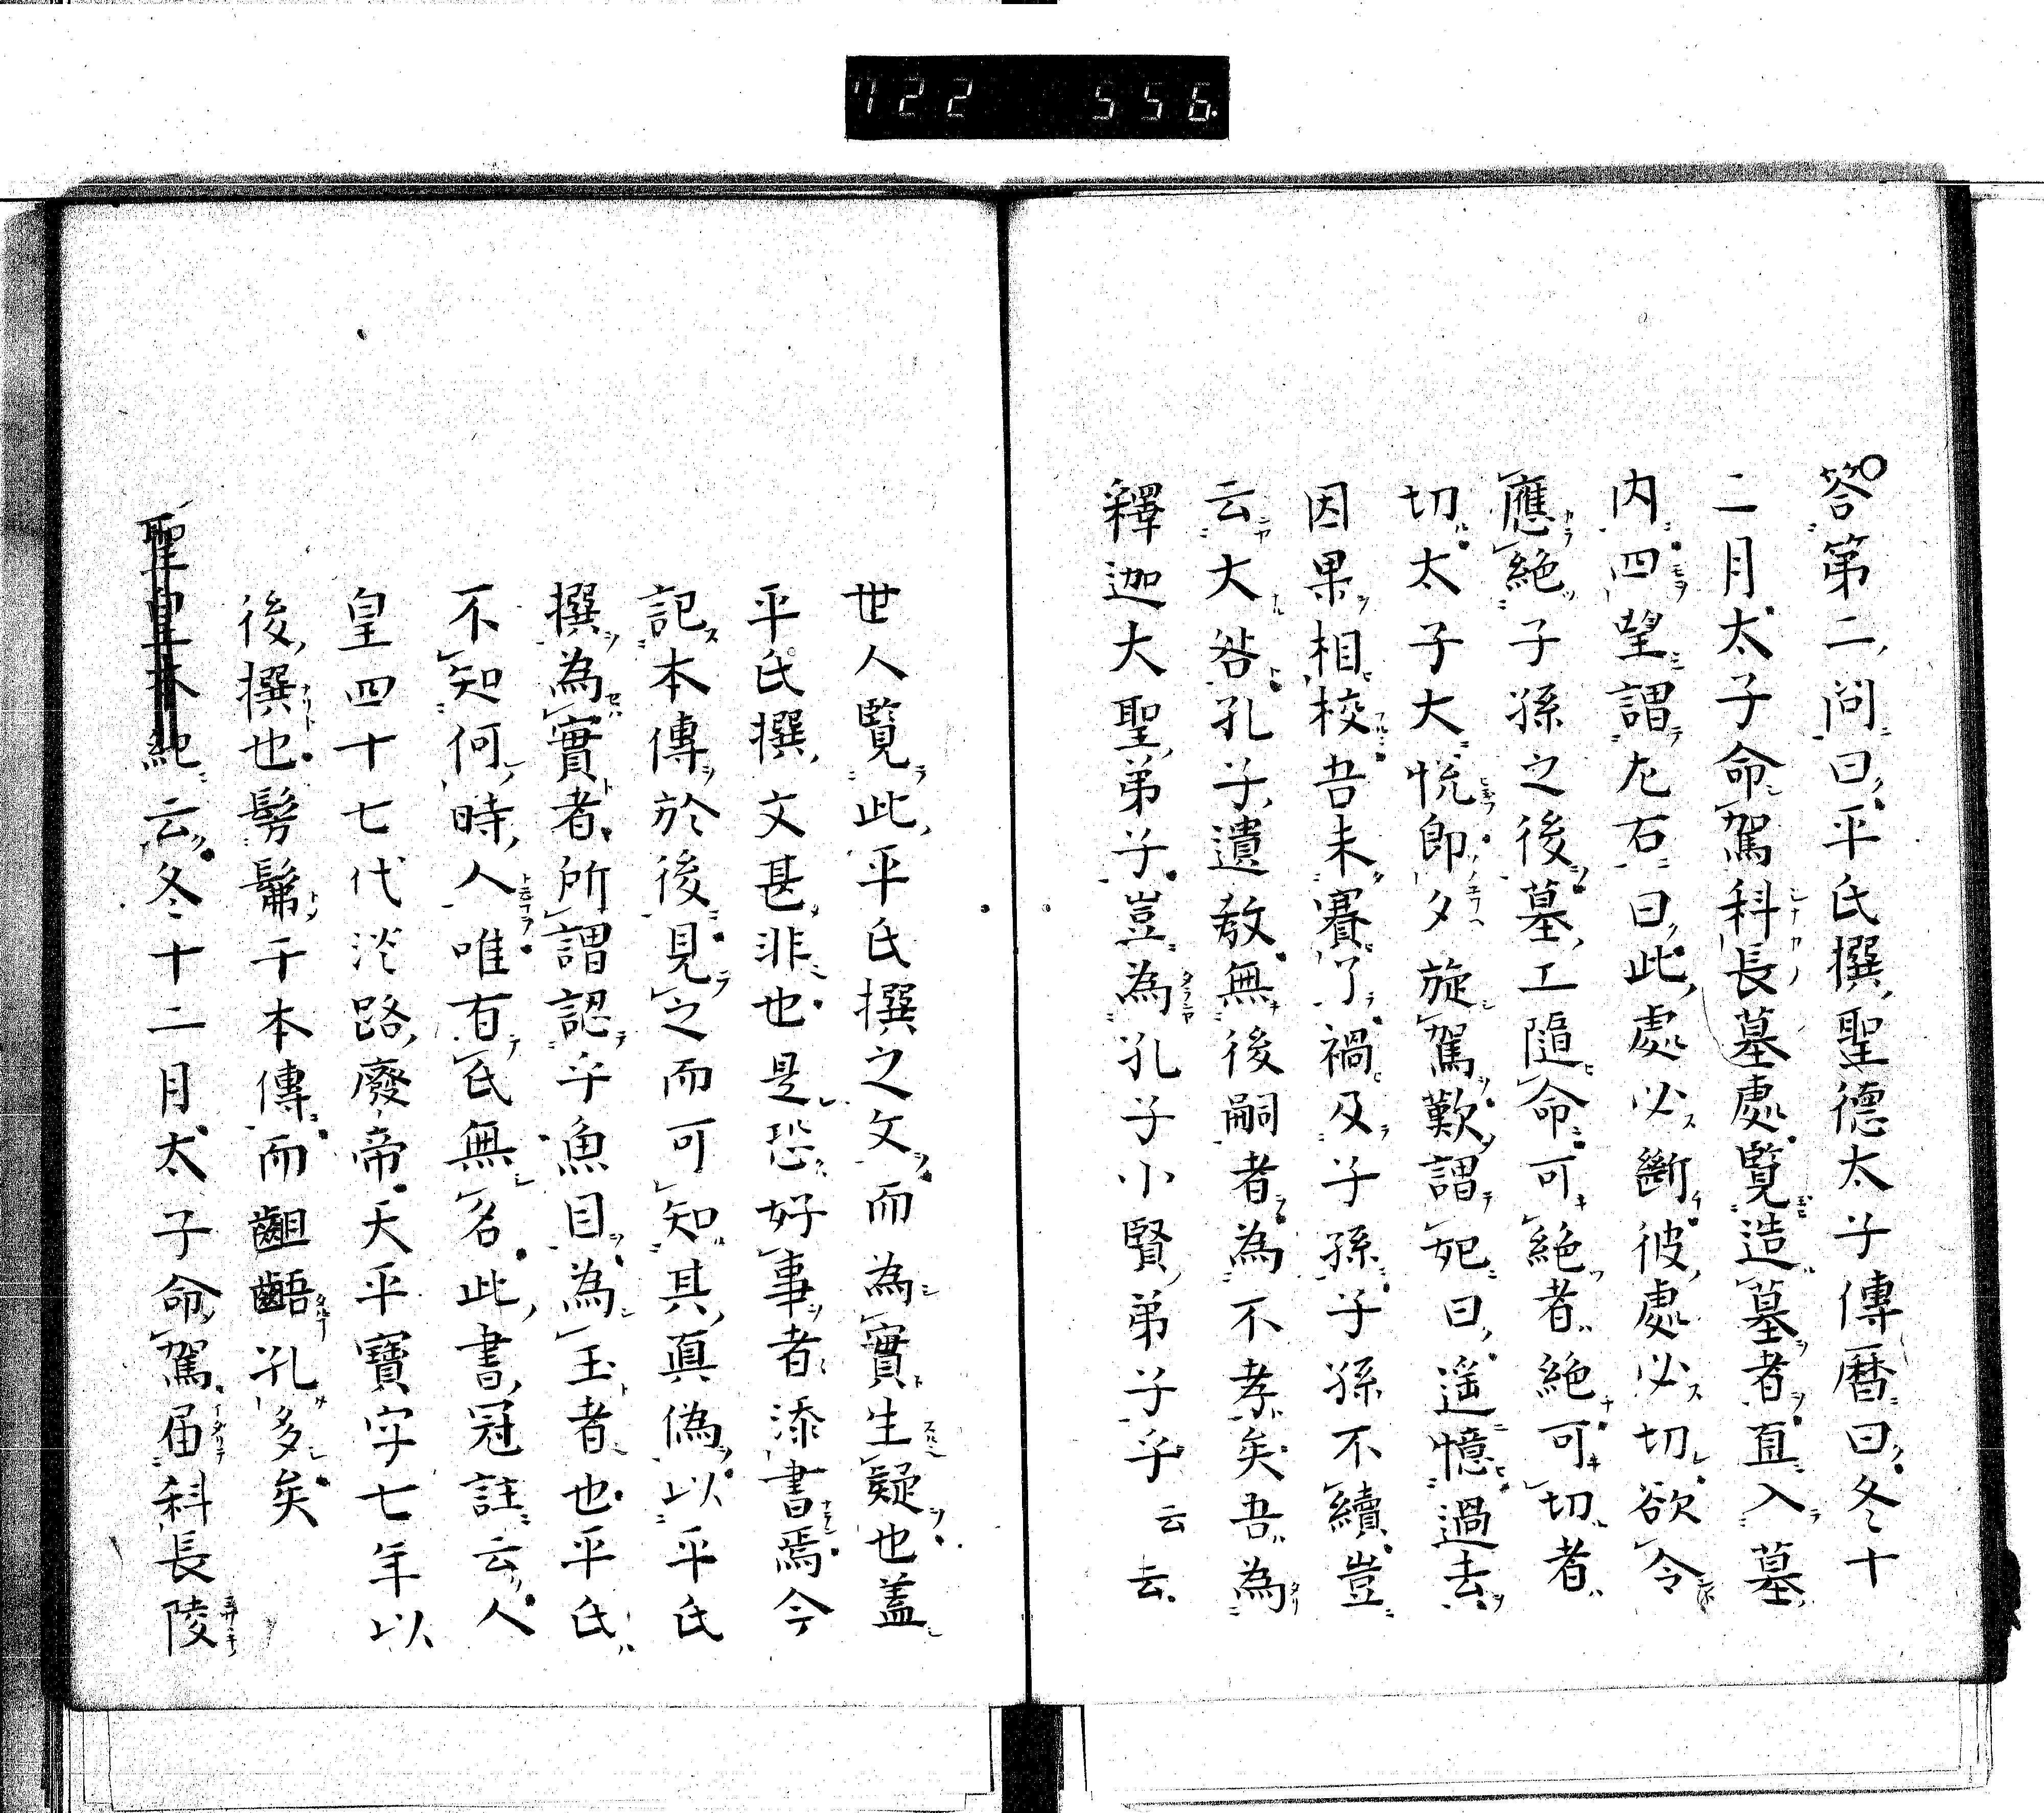 722 556
答第二問曰平氏撰聖德太子傳曆曰冬十
二月太子命駕科長墓處覧造墓者直入墓
内四望謂左右曰此處必斷彼處必切欲令
應絶子孫之後墓工隨命可絶者絶可切者
切太子大悅即夕旋駕歎謂妃曰遥憶過去
因果相校吾未賽了禍及子孫子孫不續豈
云大咎孔子遺教無後嗣者為不孝矣吾為
釋迦大聖弟子豈為孔子小賢弟子乎云云
世人覧此平氏撰之文而為實生疑也蓋
平氏撰文甚非也是恐好事者添書焉今
記本傳於後見之而可知其真偽以平氏
撰為實者所謂認乎魚目為玉者也平氏
不知何時人唯有氏無名此書冠註云人
皇四十七代淡路廢帝天平寶字七年以
後撰也髣髴于本傳而齟齬孔多矣
聖皇本紀云冬十二月太子命駕届科長陵